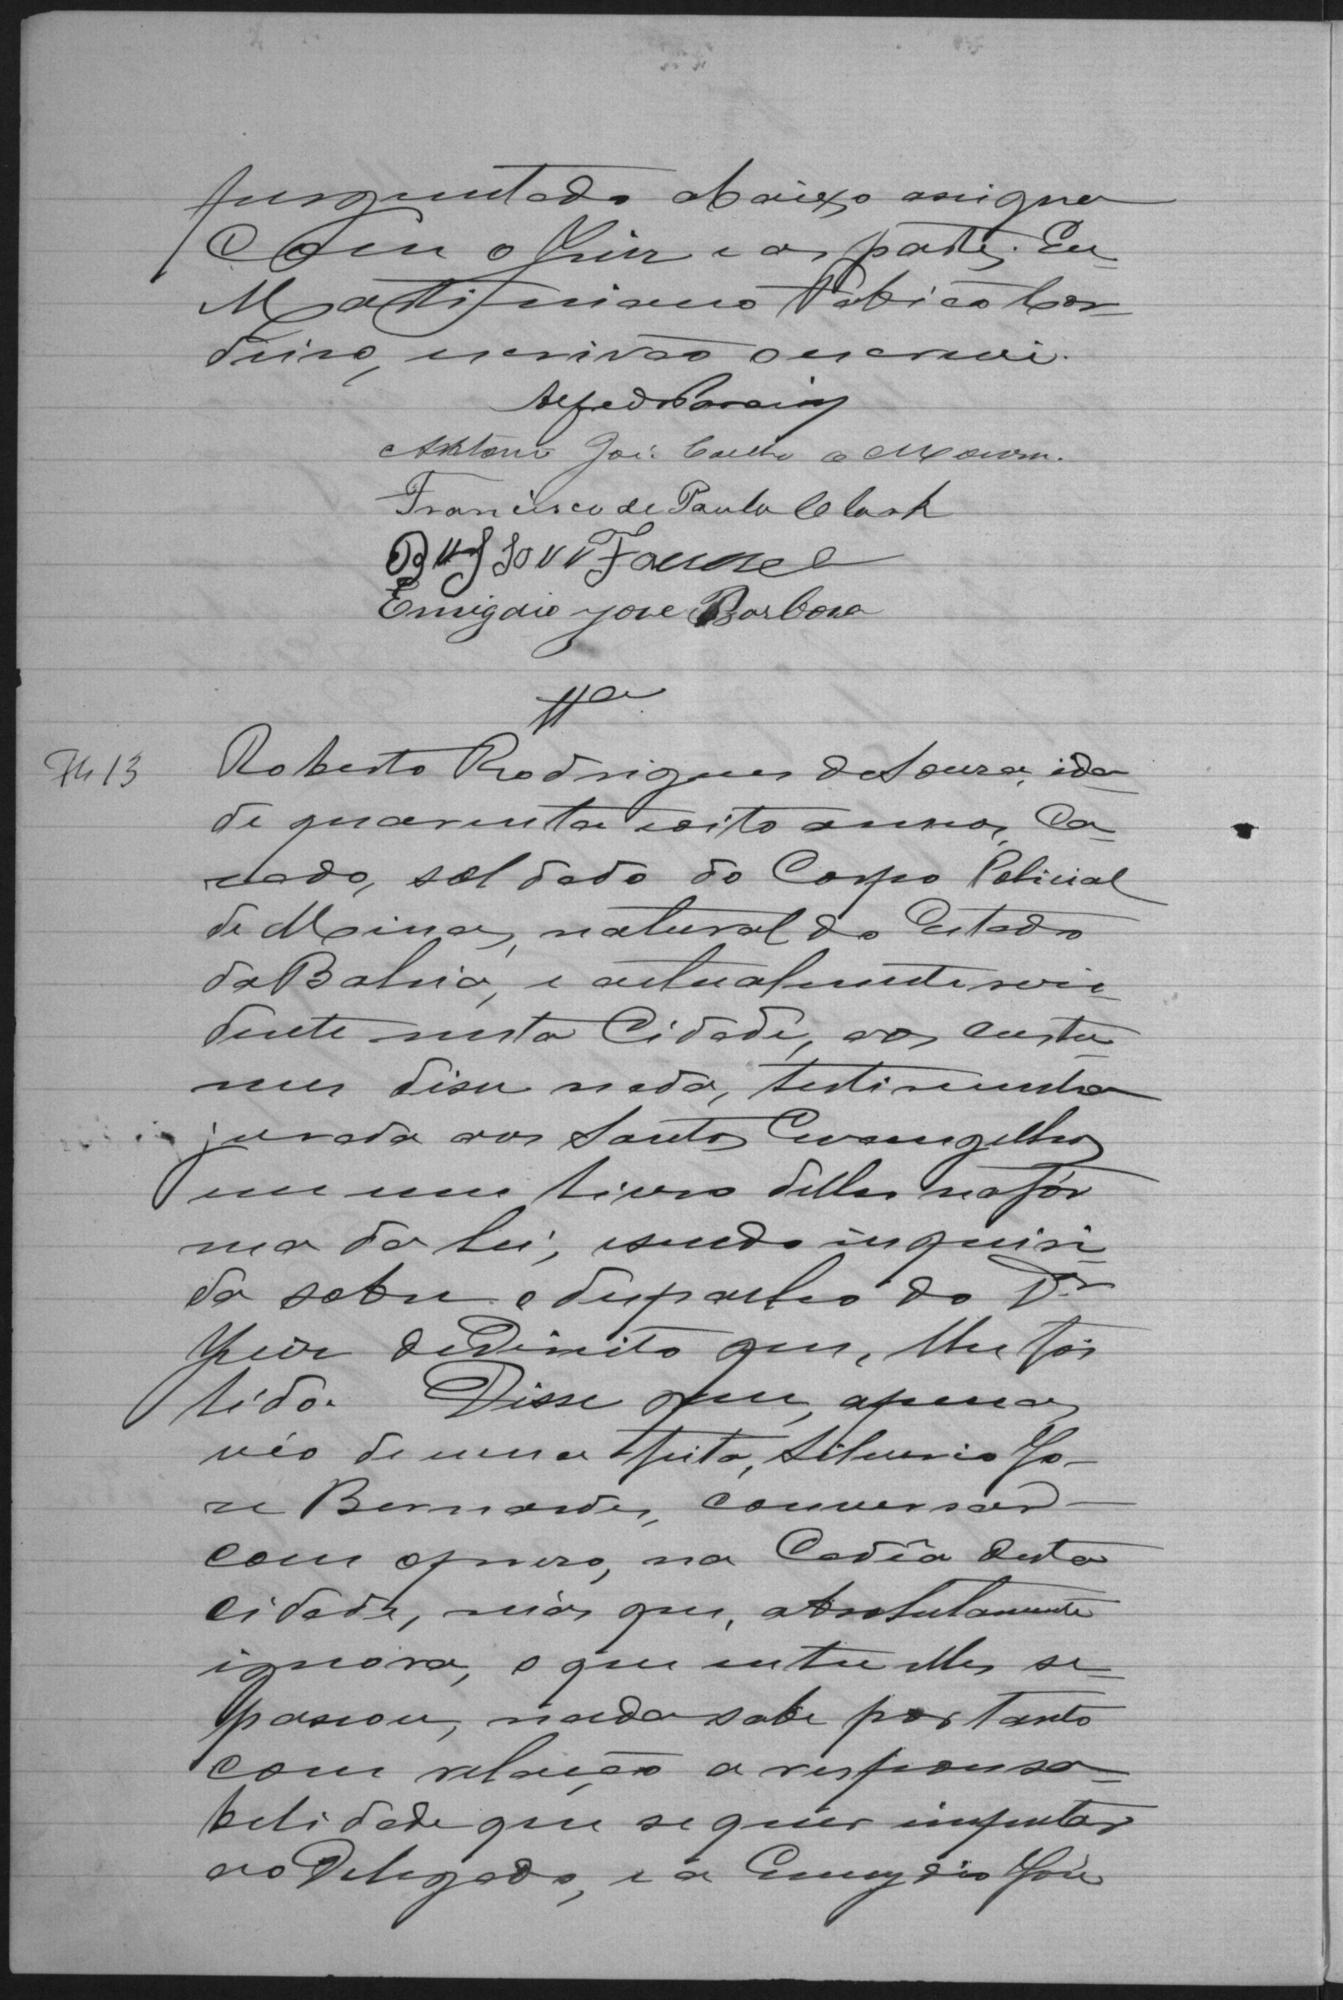 perguntado abaixo assigna
com o Juiz e as partes. Eu
Martimiano Fabiéo Cor-
deiro, escrivão o escrevi.
Antonio José Coelho de Moura.
Francisco de Paula Clark
Emigdio Jose Barbosa
11a
Th 13
Roberto Rodrigues de Souza, ida-
de quarenta e oito annos, Ca-
sado, soldado do Corpo Policial
de Minas, natural do Estado
da Bahia, e actualmente resi-
dente nesta Cidade, aos custu-
mes disse nada, testimunha
jurada aos Santos Evangelhos
em um livro delles na fór
ma da lei, e sendo inquiri-
da sobre o despacho do Dr
Juiz de Direito que, lhe foi
lido. Disse que, apenas
vio de uma feita, Silverio Jo-
se Bernardes, conversar
com o preso, na Cadêa desta
cidade, más que, absolutamente
ignora, o que entre elles se-
passou, nada sabe por tanto
com relação a responsa-
belidade que se quer imputar
ao Delegado, e a Emygdio José